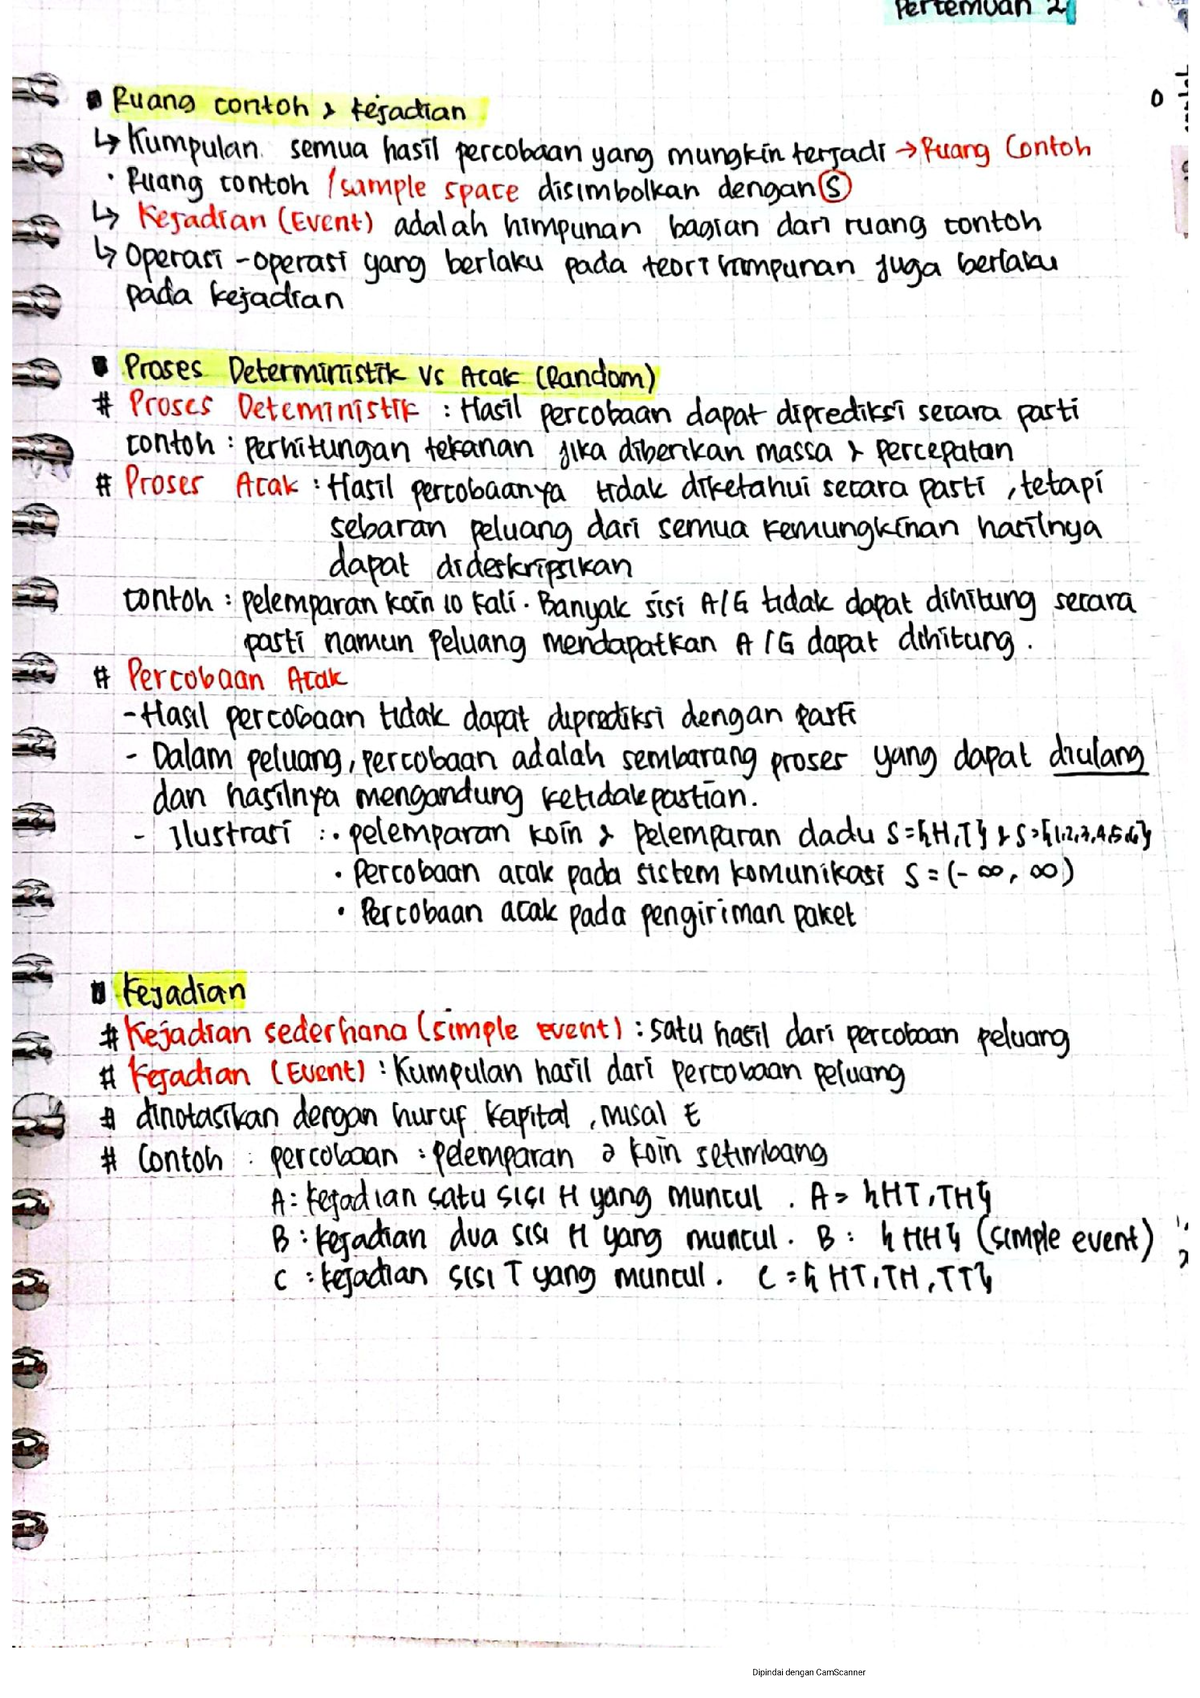 Pertemuan 2
Ruang contoh & kejadian
↳ Kumpulan semua hasil percobaan yang mungkin terjadi → Ruang Contoh
· Ruang contoh /sample space disimbolkan dengan S
↳ Kejadian (Event) adalah himpunan bagian dari ruang contoh
↳ Operasi-operasi yang berlaku pada teori himpunan juga berlaku
pada kejadian
Proses Deterministik Vs Acak (Random)
# Proses Deteministik : Hasil percobaan dapat diprediksi secara pasti
contoh : perhitungan tekanan jika diberikan massa & percepatan
# Proses Acak : Hasil percobaanya tidak diketahui secara pasti, tetapi
sebaran peluang dari semua kemungkinan hasilnya
dapat dideskripsikan
contoh : pelemparan koin 10 kali. Banyak sisi A/G tidak dapat dihitung secara
pasti namun peluang mendapatkan A/G dapat dihitung.
# Percobaan Acak
- Hasil percobaan tidak dapat diprediksi dengan pasti
- Dalam peluang, percobaan adalah sembarang proses yang dapat diulang
dan hasilnya mengandung ketidakpastian.
- Ilustrasi : · pelemparan koin & pelemparan dadu S={H,T} & S={1,2,3,4,5,6}
· Percobaan acak pada sistem komunikasi S = (-∞, ∞)
· Percobaan acak pada pengiriman paket
Kejadian
# Kejadian sederhana (simple event) : satu hasil dari percobaan peluang
# Kejadian (Event) : Kumpulan hasil dari percobaan peluang
# dinotasikan dengan huruf kapital, misal E
# Contoh : percobaan : pelemparan 2 koin setimbang
A : kejadian satu sisi H yang muncul. A = {HT, TH}
B : kejadian dua sisi H yang muncul. B : {HH} (simple event)
C : kejadian sisi T yang muncul. C = {HT, TH, TT}
Dipindai dengan CamScanner